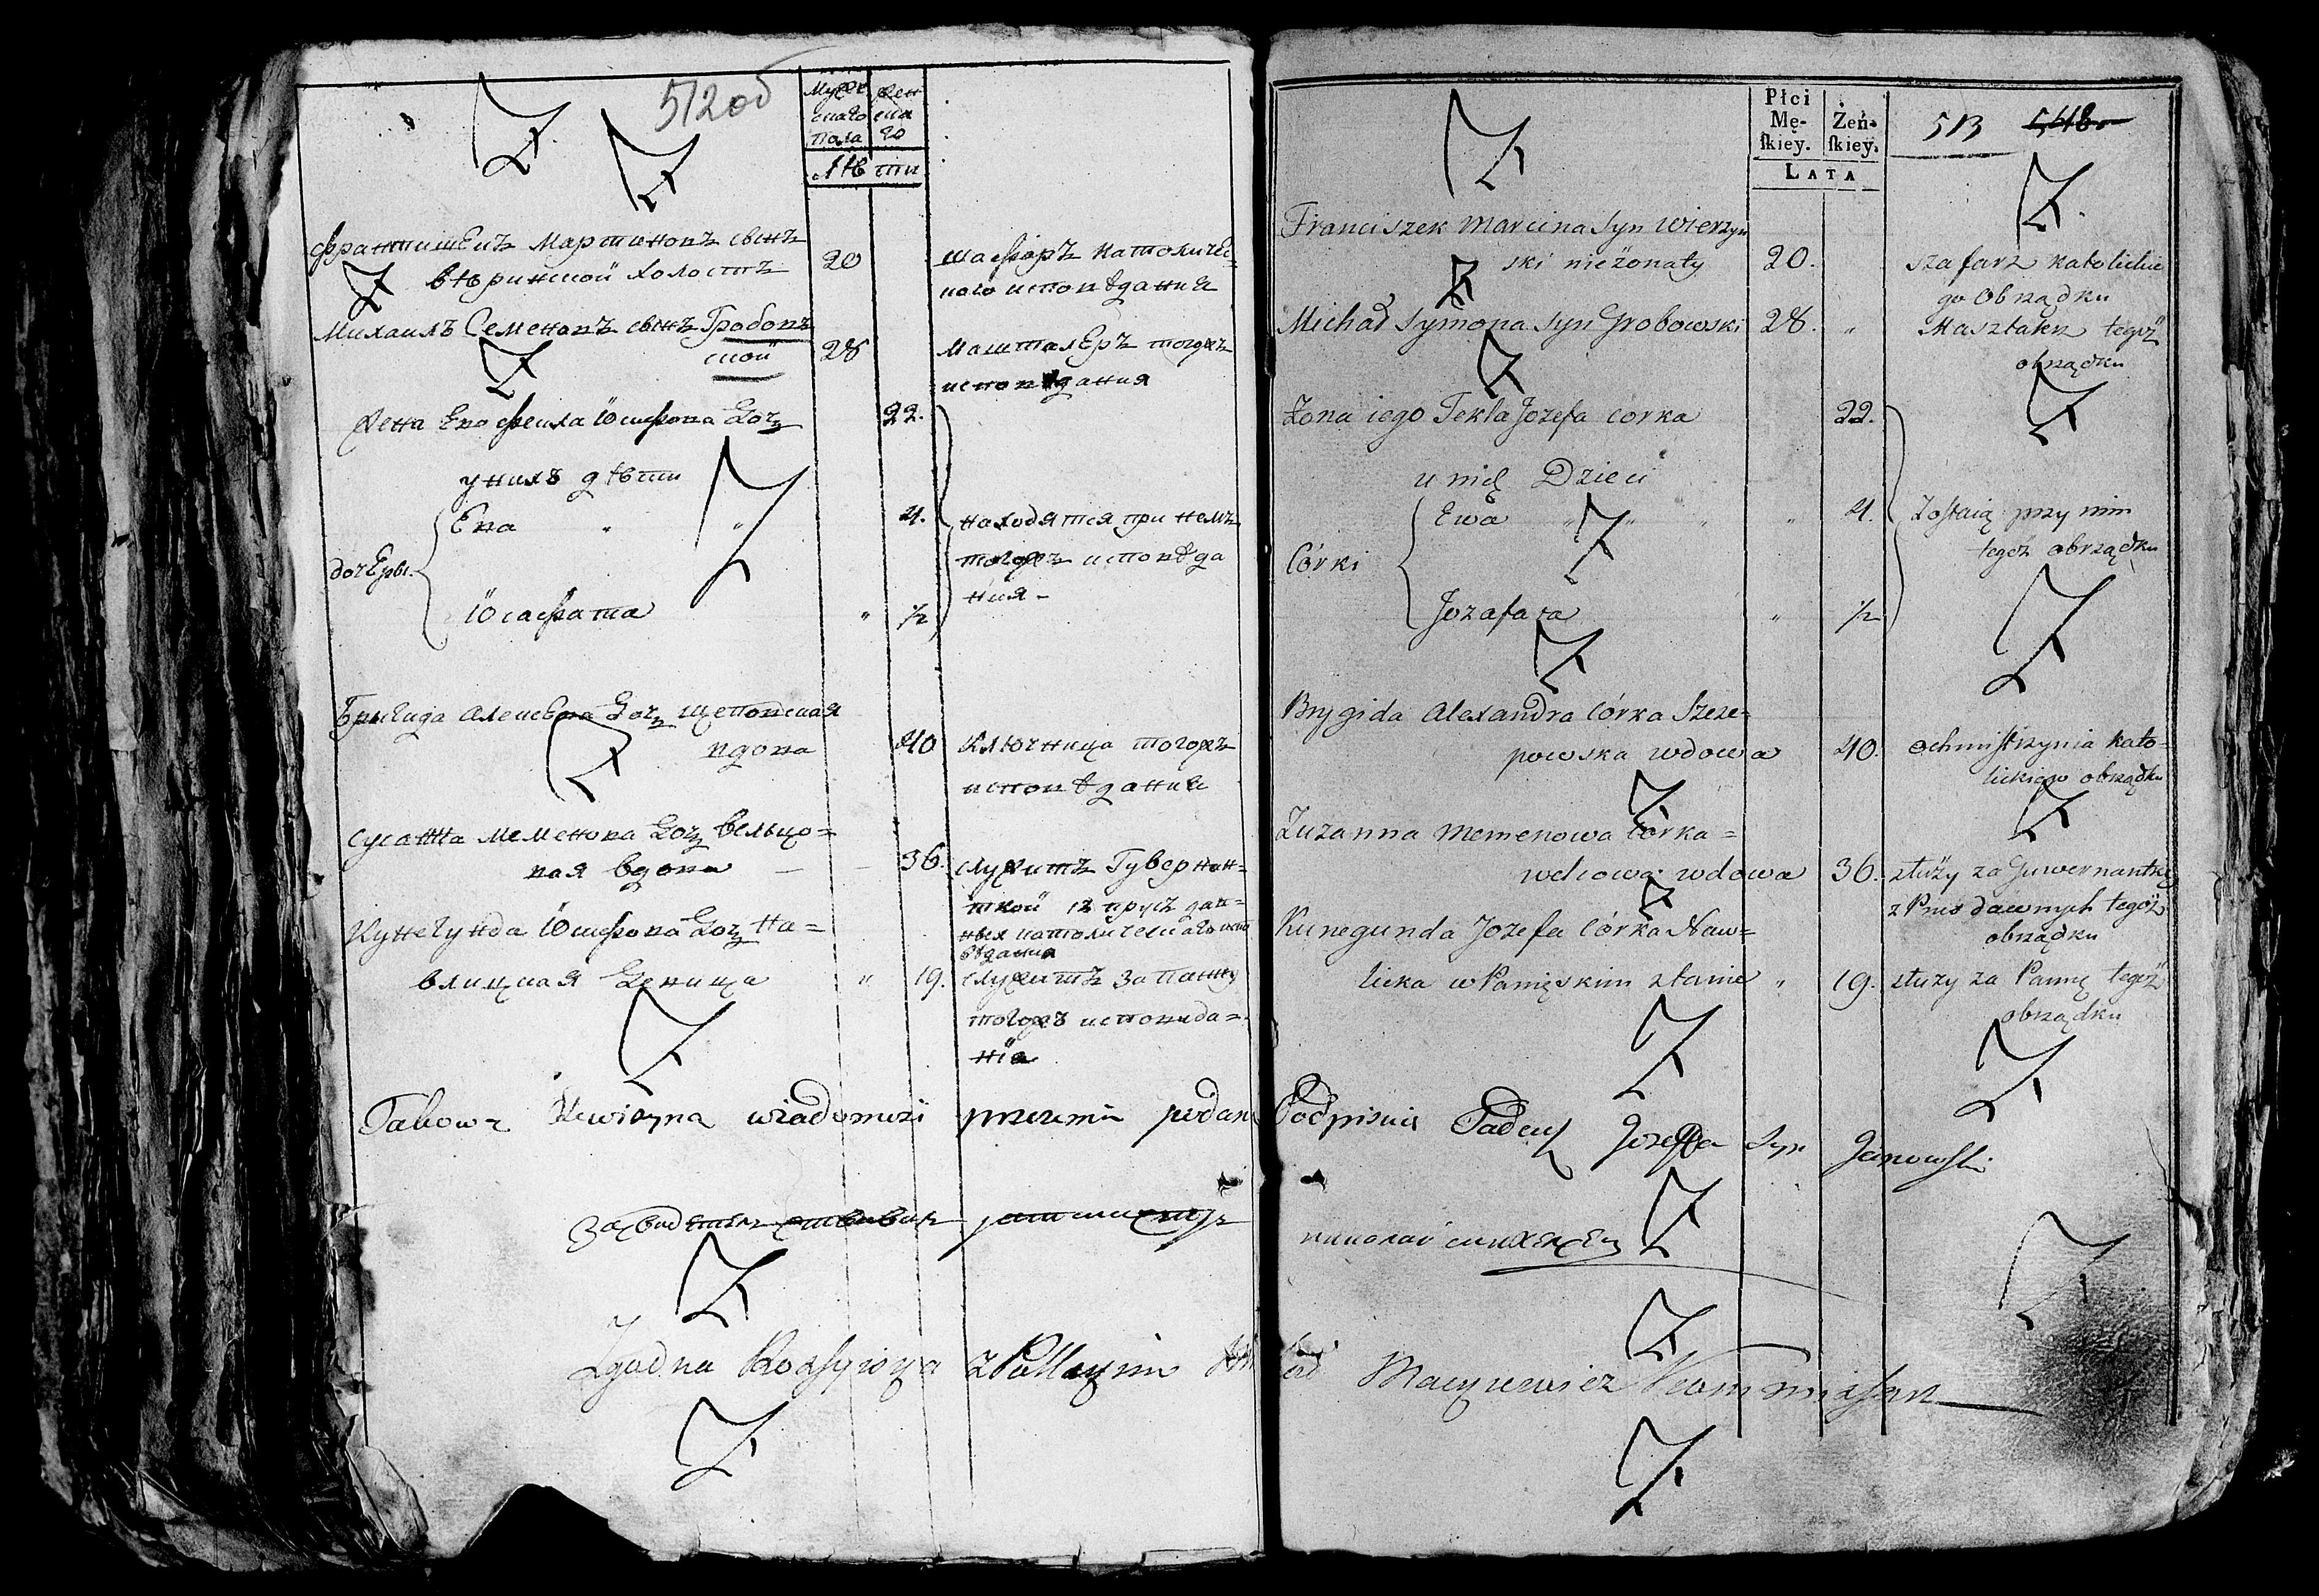 512об
Мужескаго Пола
женскаго
лѣти
Францишекъ Мартиновъ сынъ
вѣринской холостъ 20
шафаръ католичес=
каго исповѣдания
Михаилъ Семеновъ сынъ Гробов
ской 28
Машталеръ тогожъ
исповѣдания
Жена Иосифова Доч 22.
у нихъ дѣти
Ева " " 4.
дочеры.
Юсафата " 1/2
находятся при немъ
тогожъ исповѣда
ния -
Бригида Доч щеповская
вдова 40
Ключница тогожъ
исповѣдания
Сусанна Меменова Доч Вельцо=
вая вдова 36.
служитъ Гувернан=
ткой
католическаго
Кунегунда Юсифова Доч На=
влицкая Девица " 19.
служитъ за панну
тогожъ исповида=
нiя
Takowa Rewizyna wiadomość przezemnie podana
Zgodna Rossyiska z Polskym
Płci Męſkiey.
Żeńſkiey.
LATA
513 548.
Franciszek Marcina Syn Wierzyn
ski nieżonaty 20.
szafarz katolickie
go Obrządku
Michał Symona Syn Grobowski 28. "
Masztalerz tegoż
obrządku
Żona iego Tekla Jozefa corka 22.
u nich Dzieci
Ewa " " " " 4.
Córki
Jozafata " 1/2
Zostaią przy nim
tegoż obrządku
Brygida Alexandra Córka Szcze=
powska wdowa 40.
ochmistrzynia kato=
lickiego obrządku
Zuzanna Memenowa Córka=
welcowa wdowa 36.
służy za Guwernantkę
z Prus dawnych tegoż
obrządku
Kunegunda Jozefa Córka Naw=
licka w Panieńskim stanie " 19.
służy za Pannę tegoż
obrządku
Podpisuię Tadeusz Jozefa Syn Janowski
николай
Macyiewicz Kommissarz